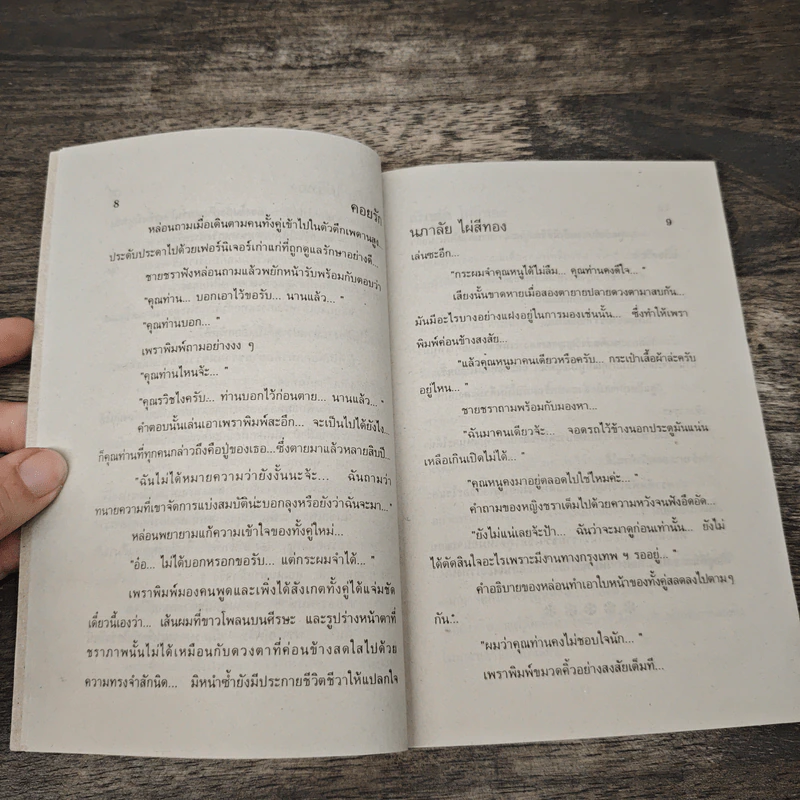 8
คอยรัก
หล่อนถามเมื่อเดินตามคนทั้งคู่เข้าไปในตัวตึกเพดานสูง..
ประดับประดาไปด้วยเฟอร์นิเจอร์เก่าแก่ที่ถูกดูแลรักษาอย่างดี...
ชายชราฟังหล่อนถามแล้วพยักหน้ารับพร้อมกับตอบว่า
"คุณท่าน... บอกเอาไว้ขอรับ... นานแล้ว... "
"คุณท่านบอก... "
เพราพิมพ์ถามอย่างงง ๆ
"คุณท่านไหนจ้ะ... "
"คุณรวิชไงครับ... ท่านบอกไว้ก่อนตาย... นานแล้ว... "
คำตอบนั้นเล่นเอาเพราพิมพ์สะอึก... จะเป็นไปได้ยังไง...
ก็คุณท่านที่ทุกคนกล่าวถึงคือปู่ของเธอ...ซึ่งตายมาแล้วหลายสิบปี...
"ฉันไม่ได้หมายความว่ายังงั้นนะจ้ะ... ฉันถามว่า
ทนายความที่เขาจัดการแบ่งสมบัติน่ะบอกลุงหรือยังว่าฉันจะมา..."
หล่อนพยายามแก้ความเข้าใจของทั้งคู่ใหม่...
"อ๋อ... ไม่ได้บอกหรอกขอรับ... แต่กระผมจำได้... "
เพราพิมพ์มองคนพูดและเพิ่งได้สังเกตทั้งคู่ได้แจ่มชัด
เดี๋ยวนี้เองว่า... เส้นผมที่ขาวโพลนบนศีรษะ และรูปร่างหน้าตาที่
ชราภาพนั้นไม่ได้เหมือนกับดวงตาที่ค่อนข้างสดใสไปด้วย
ความทรงจำสักนิด... มิหนำซ้ำยังมีประกายชีวิตชีวาให้แปลกใจ
นภาลัย ไผ่สีทอง
9
เล่นซะอีก...
"กระผมจำคุณหนูได้ไม่ลืม... คุณท่านคงดีใจ... "
เสียงนั้นขาดหายเมื่อสองตายายปลายดวงตามาสบกัน...
มันมีอะไรบางอย่างแฝงอยู่ในการมองเช่นนั้น... ซึ่งทำให้เพรา
พิมพ์ค่อนข้างสงสัย...
"แล้วคุณหนูมาคนเดียวหรือครับ... กระเป๋าเสื้อผ้าล่ะครับ
อยู่ไหน... "
ชายชราถามพร้อมกับมองหา...
"ฉันมาคนเดียวจ้ะ... จอดรถไว้ข้างนอกประตูมันแน่น
เหลือเกินเปิดไม่ได้... "
"คุณหนูคงมาอยู่ตลอดไปใช่ไหมค่ะ... "
คำถามของหญิงชราเต็มไปด้วยความหวังจนฟังอึดอัด...
"ยังไม่แน่เลยจ้ะป้า... ฉันว่าจะมาดูก่อนเท่านั้น... ยังไม่
ได้ตัดสินใจอะไรเพราะมีงานทางกรุงเทพ ฯ รออยู่... "
คำอธิบายของหล่อนทำเอาใบหน้าของทั้งคู่สลดลงไปตามๆ
กัน...
"ผมว่าคุณท่านคงไม่ชอบใจนัก... "
เพราพิมพ์ขมวดคิ้วอย่างสงสัยเต็มที...